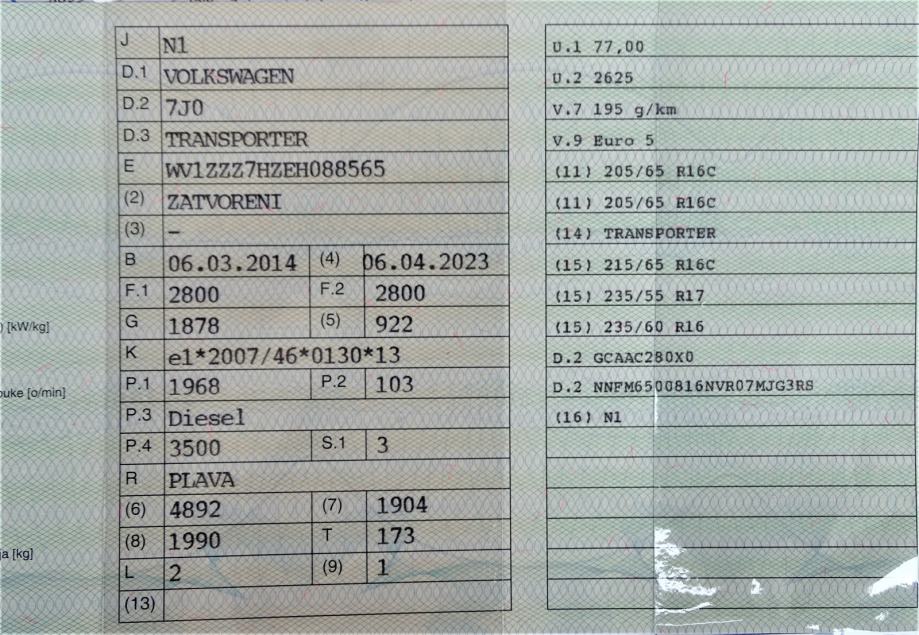 J N1
D.1 VOLKSWAGEN
D.2 7J0
D.3 TRANSPORTER
E WV1ZZZ7HZEH088565
(2) ZATVORENI
(3) –
B 06.03.2014 (4) 06.04.2023
F.1 2800 F.2 2800
) [kW/kg]
G 1878 (5) 922
K e1*2007/46*0130*13
ouke [o/min]
P.1 1968 P.2 103
P.3 Diesel
P.4 3500 S.1 3
R PLAVA
(6) 4892 (7) 1904
(8) 1990 T 173
ja [kg]
L 2 (9) 1
(13)
U.1 77,00
U.2 2625
V.7 195 g/km
V.9 Euro 5
(11) 205/65 R16C
(11) 205/65 R16C
(14) TRANSPORTER
(15) 215/65 R16C
(15) 235/55 R17
(15) 235/60 R16
D.2 GCAAC280X0
D.2 NNFM6500816NVR07MJG3RS
(16) N1